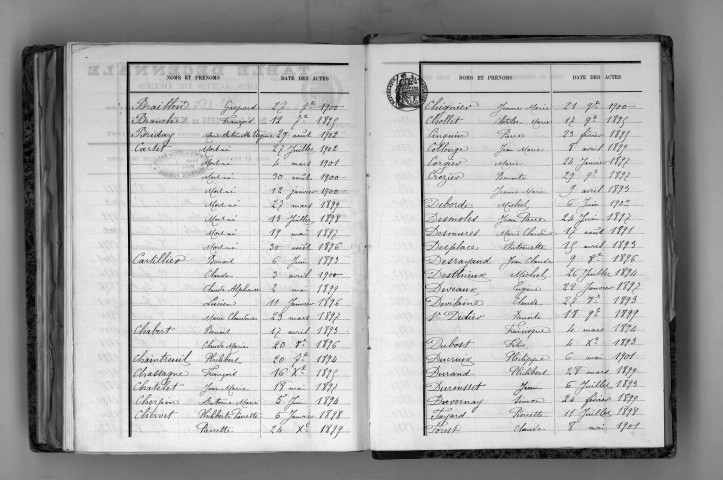 NOMS ET PRÉNOMS DATE DES ACTES
Gaspard 27 9e 1900
Branche François 12 1895
Briday 29 août 1902
Cartet Mort né 27 Juillet 1902
Mort né 4 mars 1901
Mort né 30 août 1900
Mort né 12 janvier 1900
Mort né 27 mars 1899
Mort né 13 Juillet 1898
Mort né 19 mai 1897
Mort né 30 août 1896
Cartellier Benoit 6 Juin 1893
Claude 3 avril 1900
Claude Alphonse 2 mai 1899
Lucien 11 Janvier 1896
Marie Claudine 23 mars 1897
Chabert Benoit 17 avril 1893
Claude Marie 20 1896
Chaintreuil Philibert 20 1894
Chassagne François 16 Xe 1895
Chatelet Jean Marie 18 mai 1897
Cherpin Antoine Marie 5 Juin 1894
Chervet Philiberte Pierrette 6 Janvier 1898
Pierrette 24 Xe 1899
NOMS ET PRÉNOMS DATE DES ACTES
Chignier Jeanne Marie 21 9e 1900
Chollet Marie 17 9e 1895
Cinquin 23 févr 1899
Collonge Jean Marie 8 avril 1899
Corgier Marie 24 Janvier 1897
Crozier Benoite 29 9e 1897
Jeanne Marie 9 avril 1893
Deborde Michel 6 Juin 1902
Desmoles Jean Pierre 24 Juin 1897
Desmures Marie Claudine 17 août 1891
Desplace Antoinette 15 avril 1893
Desrayaud Jean Claude 9 8e 1896
Michel 26 Juillet 1894
Deveaux Eugène 22 Janvier 1897
Claude 27 1893
St Didier Benoite 18 9e 1899
Francisque 4 mars 1894
Dubost 4 Xe 1893
Ducroux Philippe 6 mai 1901
Durand Philibert 28 mars 1899
Durousset Jean 6 Juillet 1893
Duvernay Simon 24 févr 1899
Fayard Pierrette 11 Juillet 1898
Forest Claude 8 mai 1901